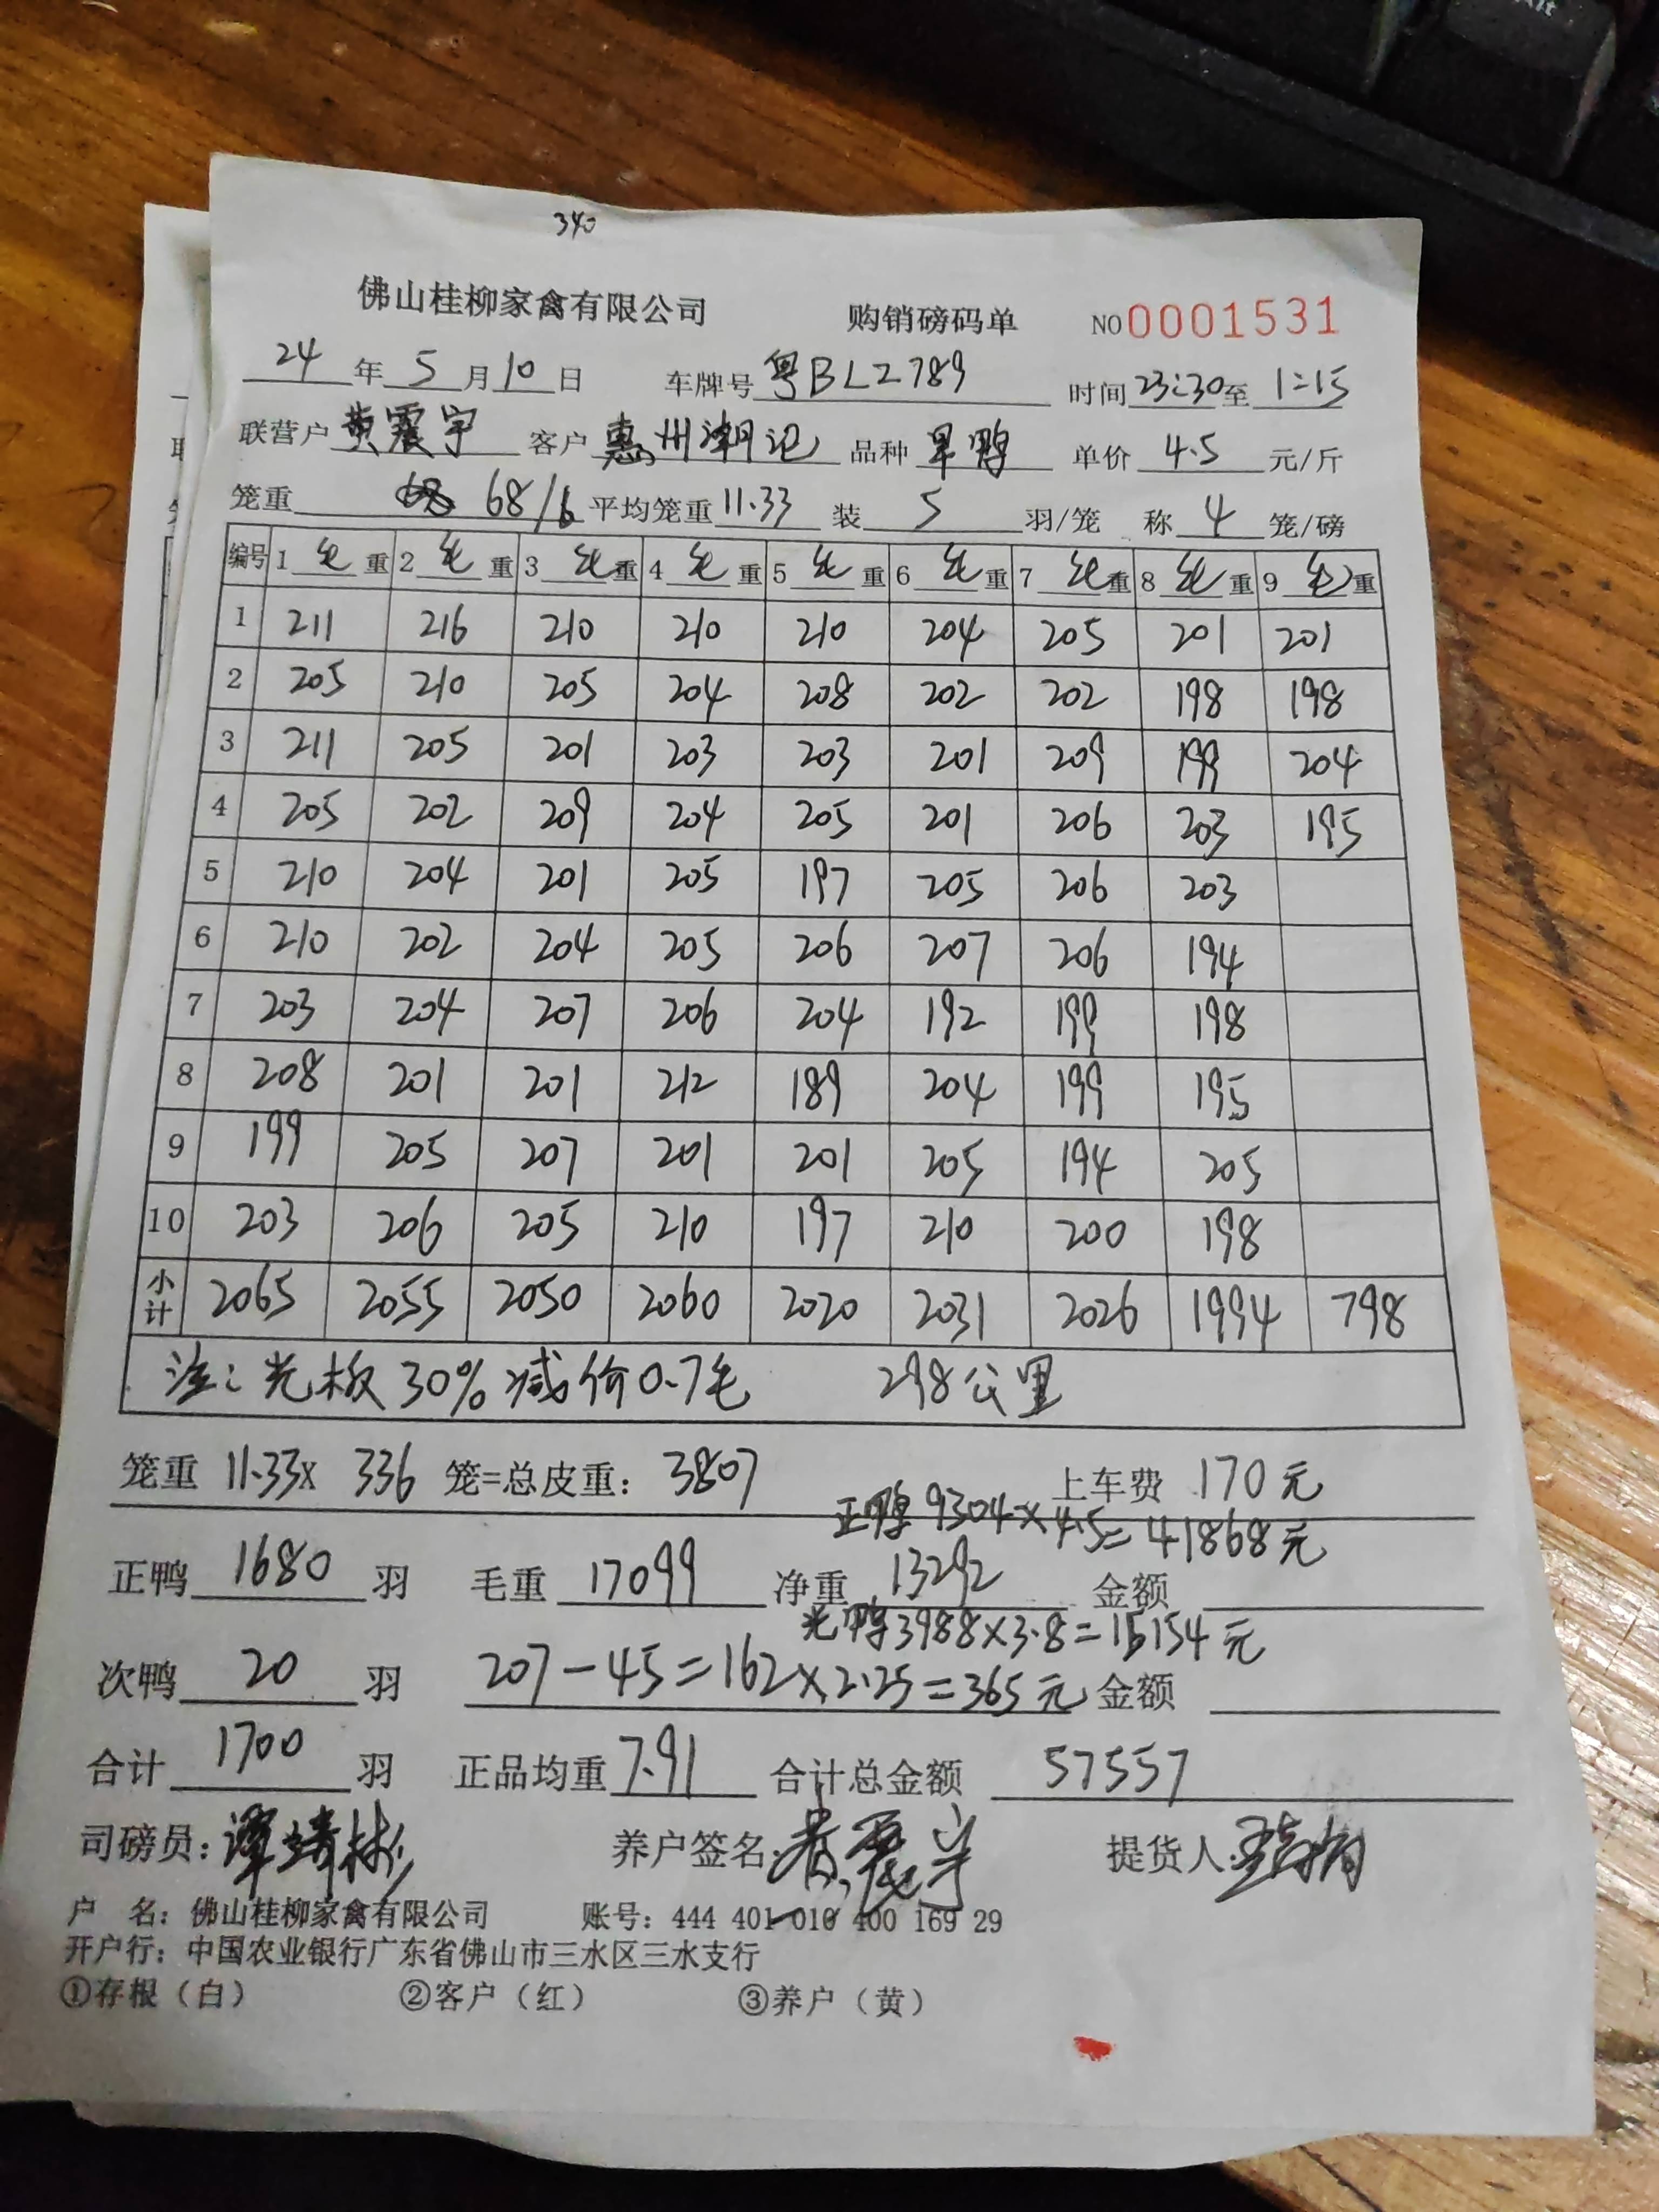 340
佛山桂柳家禽有限公司 购销磅码单 NO 0001531
24 年 5 月 10 日 车牌号 粤BLZ789 时间 23:30 至 1:15
联营户 黄震宇 客户 惠州潮记 品种 旱鸭 单价 4.5 元/斤
笼重 68/6 平均笼重 11.33 装 5 羽/笼 称 4 笼/磅
编号 1 毛 重 2 毛 重 3 毛 重 4 毛 重 5 毛 重 6 毛 重 7 毛 重 8 毛 重 9 毛 重
1 211 216 210 210 210 204 205 201 201
2 205 210 205 204 208 202 202 198 198
3 211 205 201 203 203 201 209 199 204
4 205 202 209 204 205 201 206 203 195
5 210 204 201 205 197 205 206 203
6 210 202 204 205 206 207 206 194
7 203 204 207 206 204 192 199 198
8 208 201 201 212 189 204 199 195
9 199 205 207 201 201 205 194 205
10 203 206 205 210 197 210 200 198
小计 2065 2055 2050 2060 2020 2031 2026 1994 798
注:光板30%减价0.7毛 298公里
笼重 11.33× 336 笼=总皮重: 3807 上车费 170元
正鸭9304×4.5=41868元
正鸭 1680 羽 毛重 17099 净重 13292 金额
光鸭3988×3.8=15154元
次鸭 20 羽 207-45=162×2.25=365元 金额
合计 1700 羽 正品均重 7.91 合计总金额 57557
司磅员: 谭靖彬 养户签名: 黄震宇 提货人:
户 名: 佛山桂柳家禽有限公司 账号: 444 401 010 400 169 29
开户行: 中国农业银行广东省佛山市三水区三水支行
①存根(白) ②客户(红) ③养户(黄)